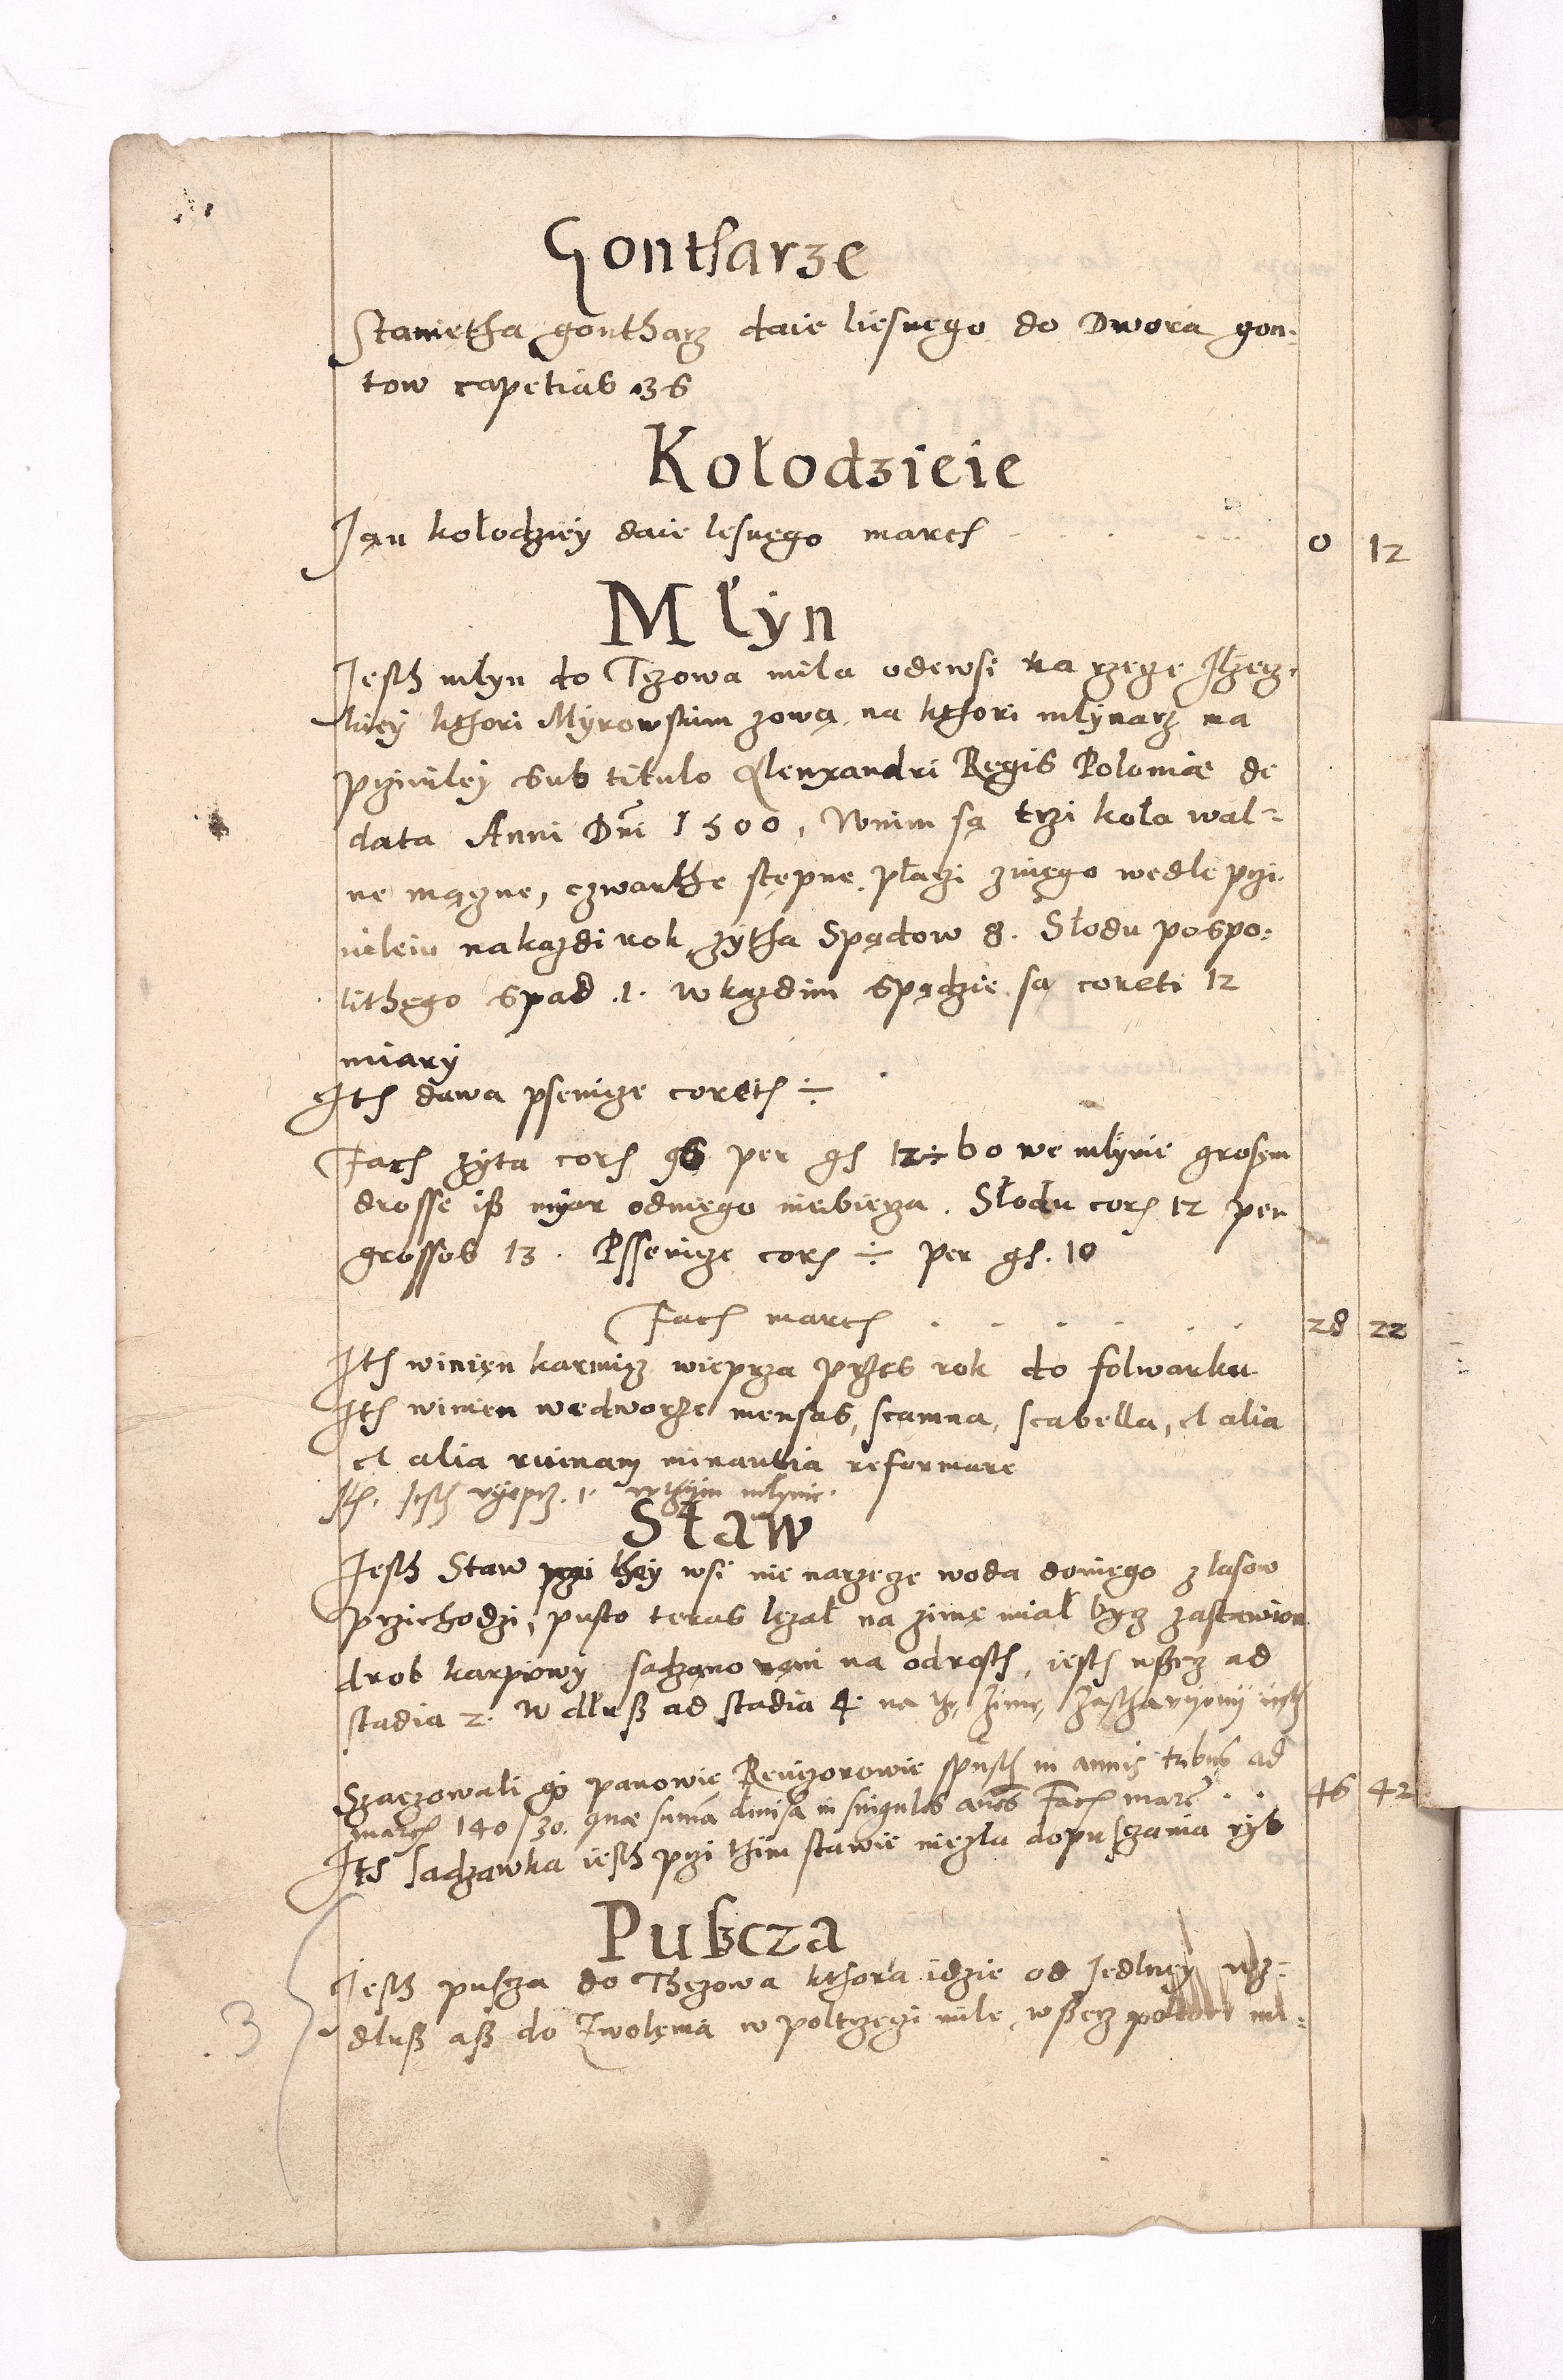 Gontharze
Stanietha gontharz daie liesnego do Dwora gon-
tow capetias 36
Kołodzieie
Jan kołodziey daie lesnego marcs 0 12
Młyn
Jesth mlyn do Tczowa mila odewsi na rzege Ilzecz-
kiey kthori Myrowskim zową na kthori mlynarz ma
prziviley sub titulo Alexandri Regis Poloniæ de
data Anni Dni 1500, Wnim są trzi kola wal-
ne mączne, czwarthe stępne płaczi zniego wedle przi-
vileiu nakazdi rok zytha Spądow 8. Słodu pospo-
lithego spad .1. wkazdim spądzie są coreti 12
miary
Its dawa psenicze corets ÷
Facs zyta cors 96 per gs 12÷ bo we mlynie grosem
drosse iß myar odniego niebierza. Słodu cors 12 per
grossos 13. Pssenicze cors ÷ per gs. 10
Facit marcs 28 22
Its winien karmicz wieprza przes rok do folwarku
Its winien wedworze mensas, scamna, scabella, et alia
et alia ruinam minantia reformare
Its. Jesth wyeprz .1. wthym mlynie.
Staw
Jesth Staw przi they wsi nie narzecze woda doniego zlasow
przichodzi, pusto teras lezał na zimę miał bycz zastawion
drob karpiowy sadzano nan na odrosth, iesth wßerz ad
stadia 2. W dłuß ad stadia 4. na thę zimę zasthawyony iesth
Szaczowali go panowie Revizorowie spusth in annis tribus ad
marcs 140/30. quæ summa divisa in singulos annos Facs marc 46 42
Its sadzawka iesth przi thim stawie niezla dopusczania ryb
Pußcza
Jesth puscza do Thczowa kthora idzie od Jedlney wz-
dłuß aß do Zwolenia w poltrzeczi mile, wßerz poltori mi-
3